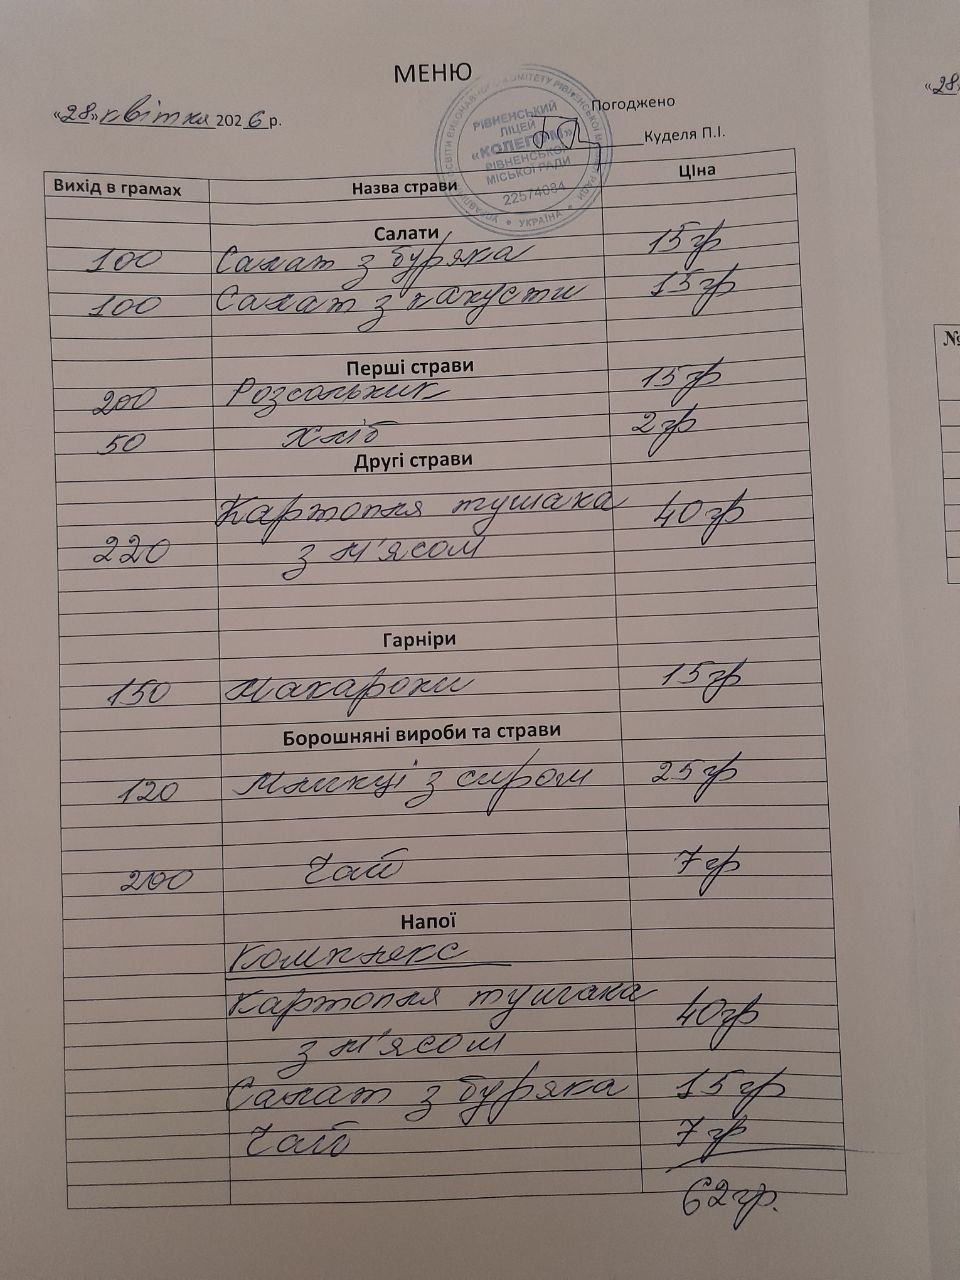 МЕНЮ
«28» квітня 2026 р.
Погоджено
Куделя П.І.
УПРАВЛІННЯ ОСВІТИ ВИКОНАВЧОГО КОМІТЕТУ РІВНЕНСЬКОЇ МІСЬКОЇ РАДИ * УКРАЇНА *
РІВНЕНСЬКИЙ
ЛІЦЕЙ
«КОЛЕГІУМ»
РІВНЕНСЬКОЇ
МІСЬКОЇ РАДИ
22574084
Вихід в грамах Назва страви ЦІна
Салати
100 Салат з буряка 15гр
100 Салат з капусти 15гр
Перші страви
200 Розсольник 15гр
50 Хліб 2гр
Другі страви
Картопля тушака 40гр
220 з м'ясом
Гарніри
150 Макарони 15гр
Борошняні вироби та страви
120 Млинці з сиром 25гр
200 Чай 7гр
Напої
Комплекс
Картопля тушака 40гр
з м'ясом
Салат з буряка 15гр
Чай 7гр
62гр.
«28
№